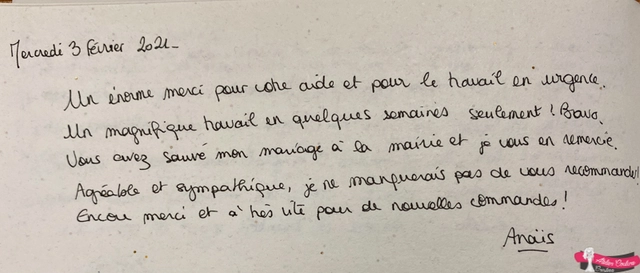 Mercredi 3 février 2021-
Un énorme merci pour votre aide et pour le travail en urgence.
Un magnifique travail en quelques semaines seulement ! Bravo.
Vous avez sauvé mon mariage à la mairie et je vous en remercie.
Agréable et sympathique, je ne manquerais pas de vous recommander!
Encore merci et à très vite pour de nouvelles commandes !
Anaïs
Atelier Couture